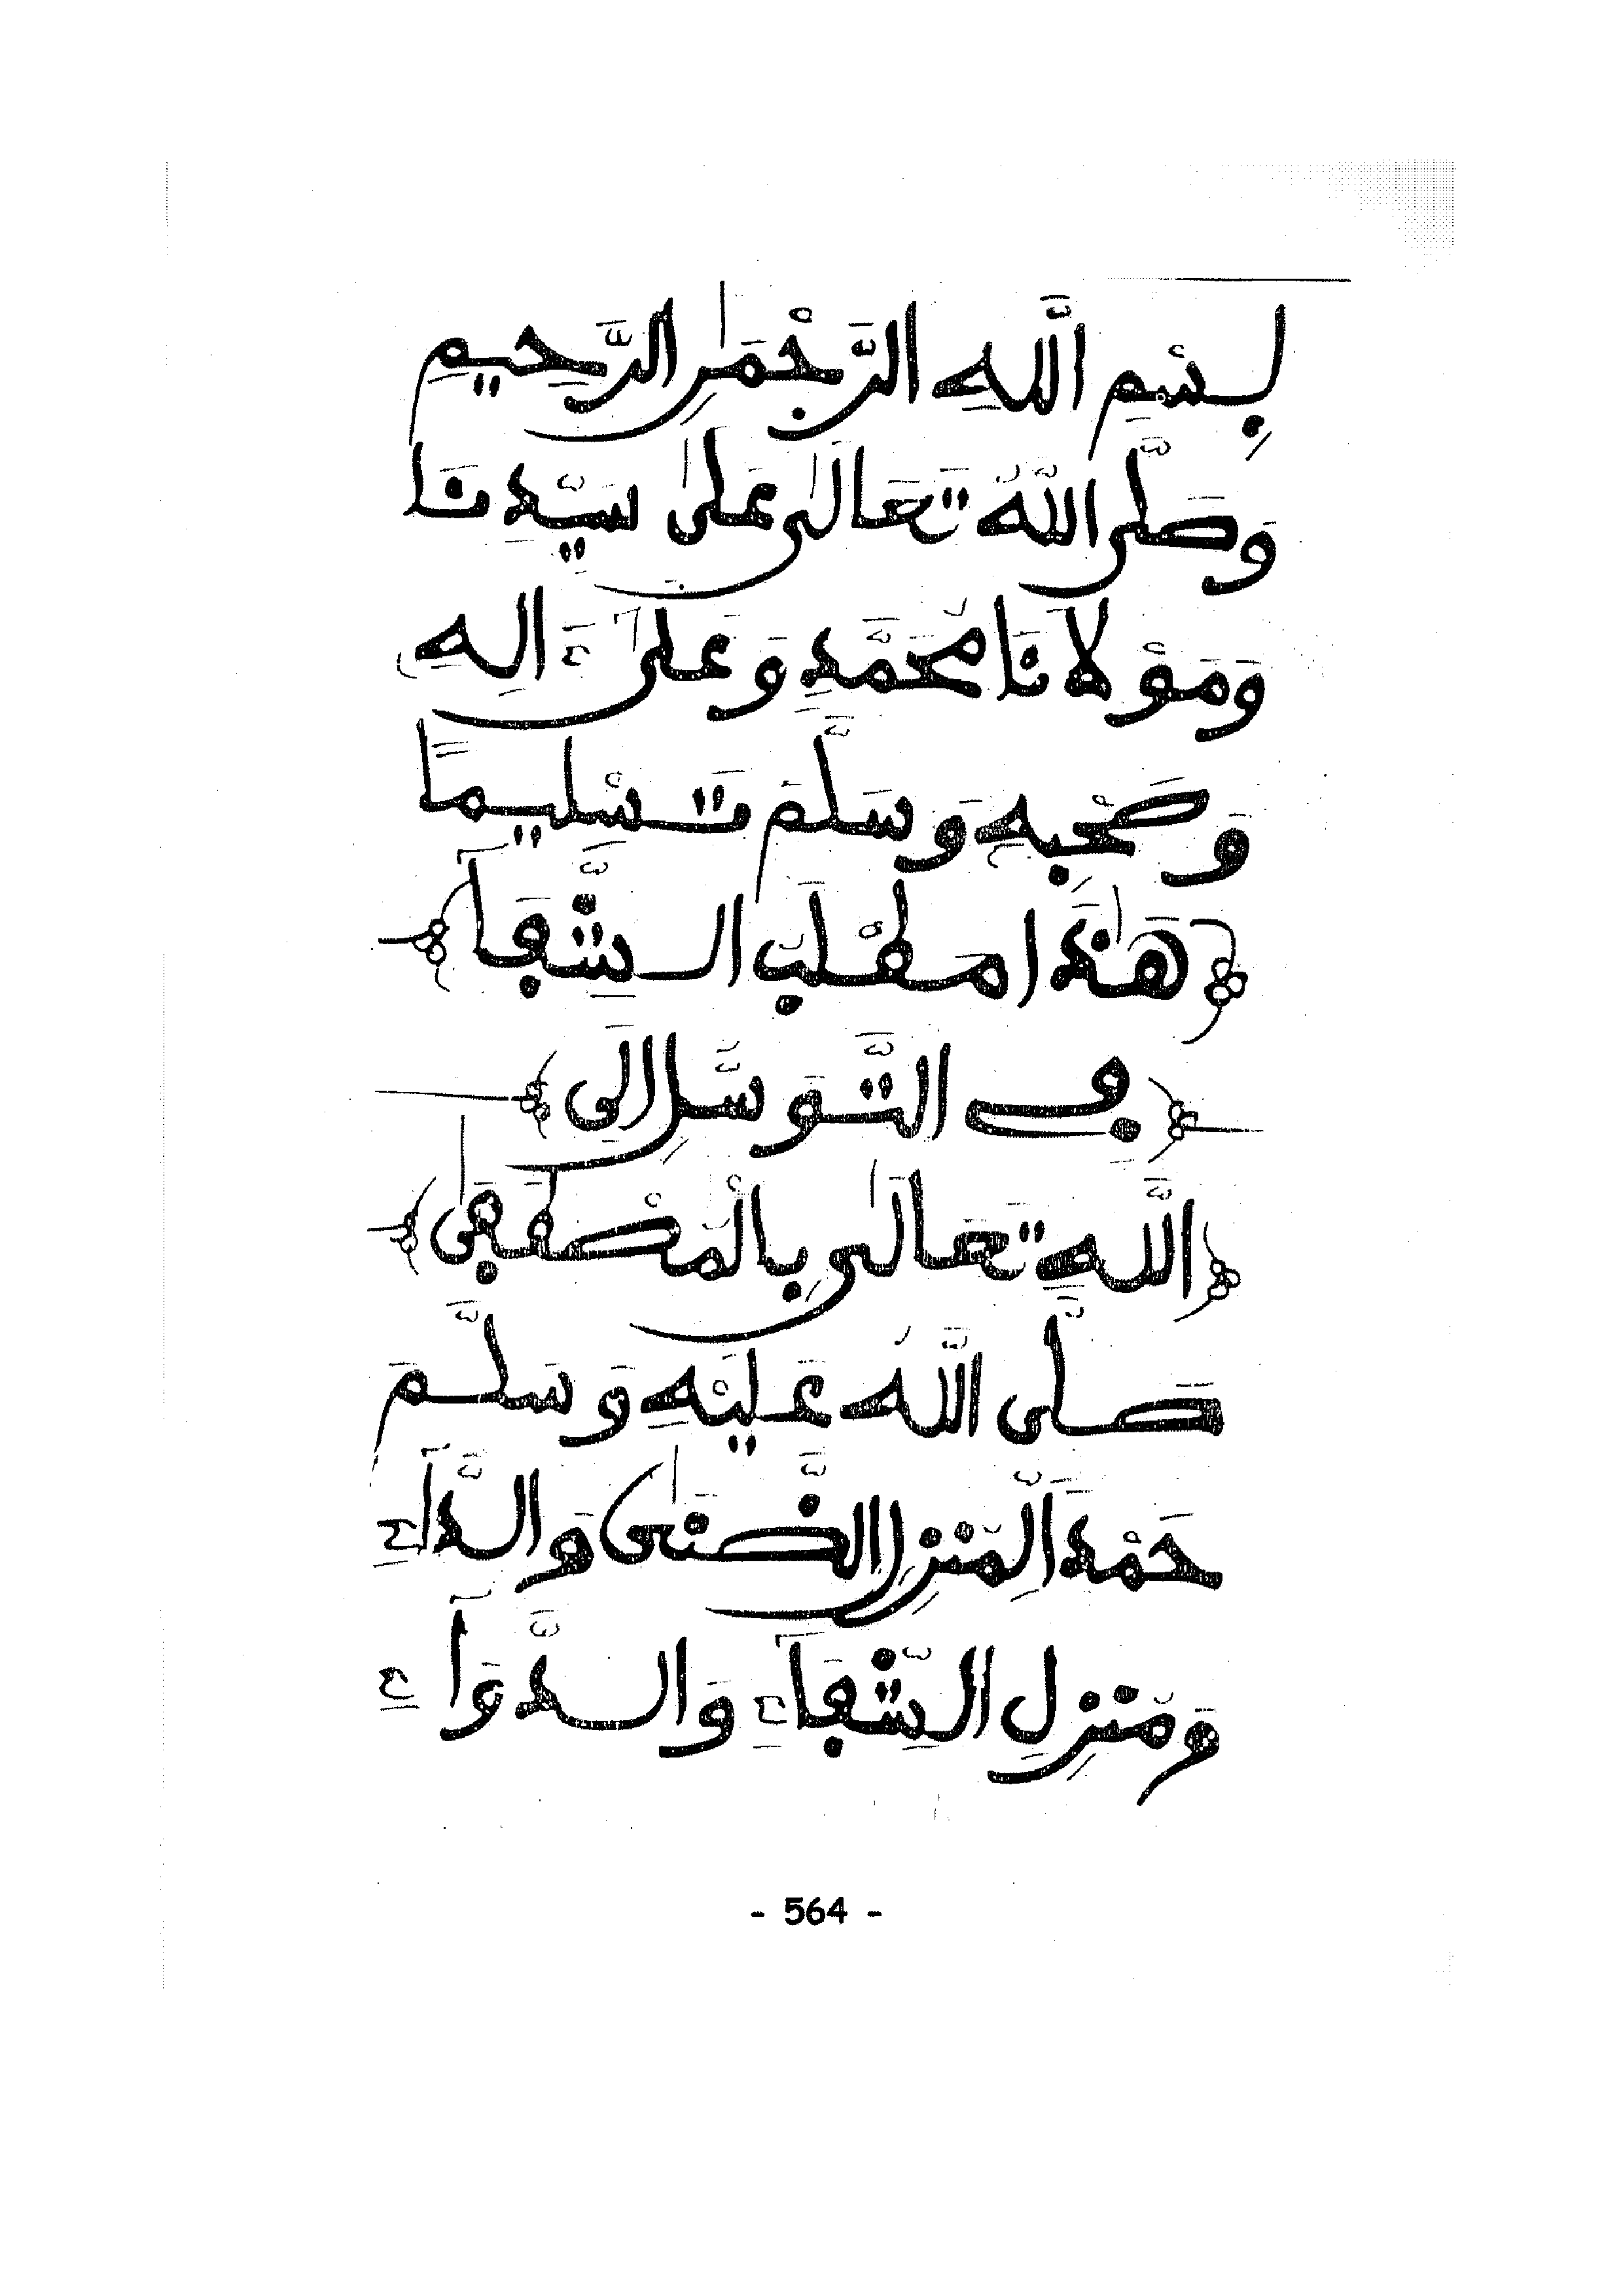 بِسْمِ اللَّهِ الرَّحْمٰنِ الرَّحِيمِ
وَصَلَّى اللَّهُ تَعَالَىٰ عَلَىٰ سَيِّدِنَا
وَمَوْلَانَا مُحَمَّدٍ وَعَلَىٰٓ ءَالِهِ
وَصَحْبِهِ وَسَلَّمَ تَسْلِيمًا
هَٰذَا مَطْلَبُ الشِّفَآ
فِي التَّوَسُّلِ إِلَى
اللَّهِ تَعَالَىٰ بِالْمُصْطَفَىٰ
صَلَّى اللَّهُ عَلَيْهِ وَسَلَّمَ
حَمْدًا لِّمُنزِلِ الضَّنَىٰ وَالدَّآءِ
وَمُنزِلِ الشِّفَآءِ وَالدَّوَآءِ
- 564 -